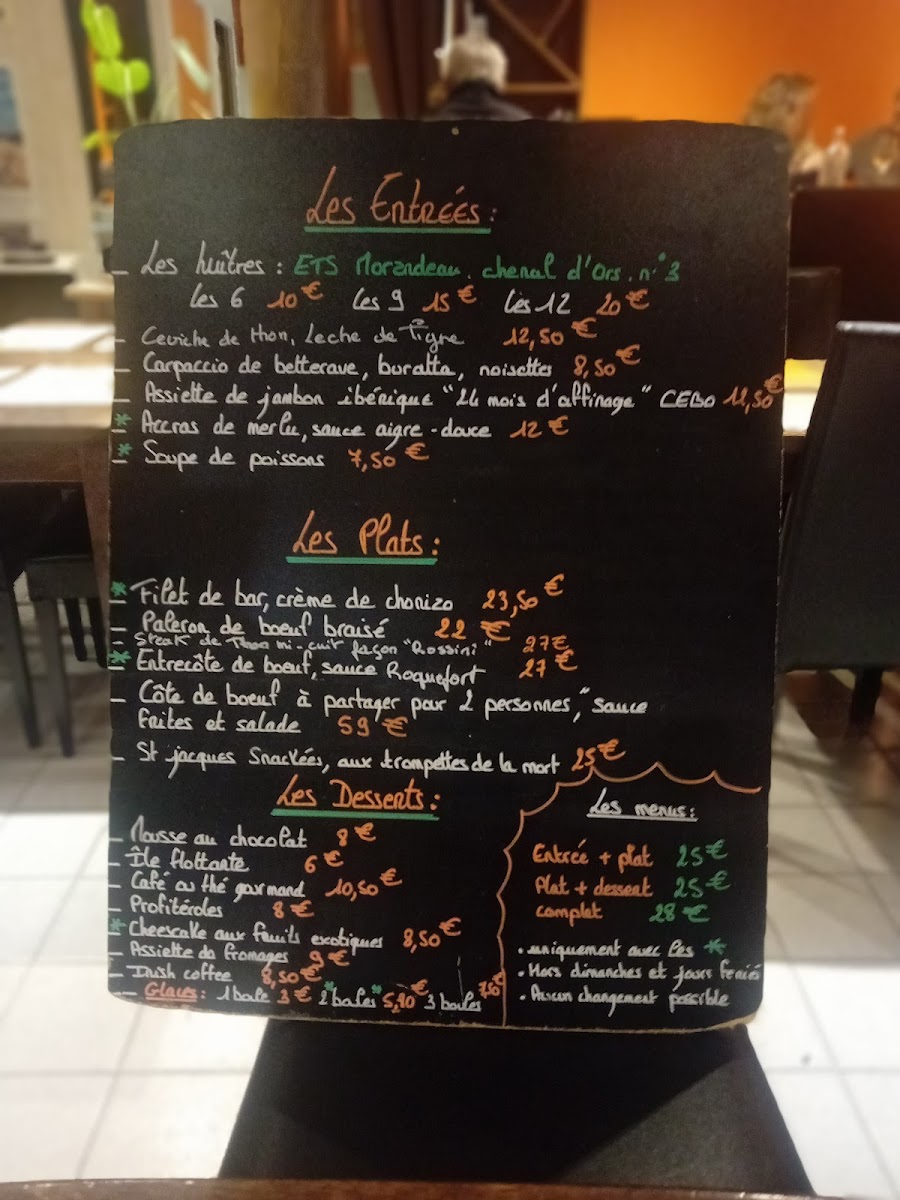 Les Entrées :
- Les huîtres : ETS Morandeau. chenal d'Ors. n°3
Les 6 10€ Les 9 15€ Les 12 20€
- Ceviche de thon, Leche de Tigre 12,50€
- Carpaccio de betterave, buratta, noisettes 8,50€
- Assiette de jambon ibérique "24 mois d'affinage" CEBO €
* Accras de merlu, sauce aigre-douce 12€
* Soupe de poissons 7,50€
Les Plats :
* Filet de bar, crème de chorizo 23,50€
- Paleron de boeuf braisé 22€
- Steak de Thon mi-cuit façon "Rossini" 27€
* Entrecôte de boeuf, sauce Roquefort 27€
- Côte de boeuf à partager pour 2 personnes," sauce
frites et salade 59€
- St jacques Snackées, aux trompettes de la mort 25€
Les Desserts :
- Mousse au chocolat 8€
- Île flottante 6€
- Café ou thé gourmand 10,50€
- Profitéroles 8€
* Cheescake aux fruits exotiques 8,50€
- Assiette de fromages 9€
- Irish coffee 8,50€
- Glaces : 1 boule 3€ *2 boules* € 3 boules €
Les menus :
Entrée + plat 25€
Plat + dessert 25€
complet 28€
. uniquement avec les *
. Hors dimanches et jours feriés
. Aucun changement possible